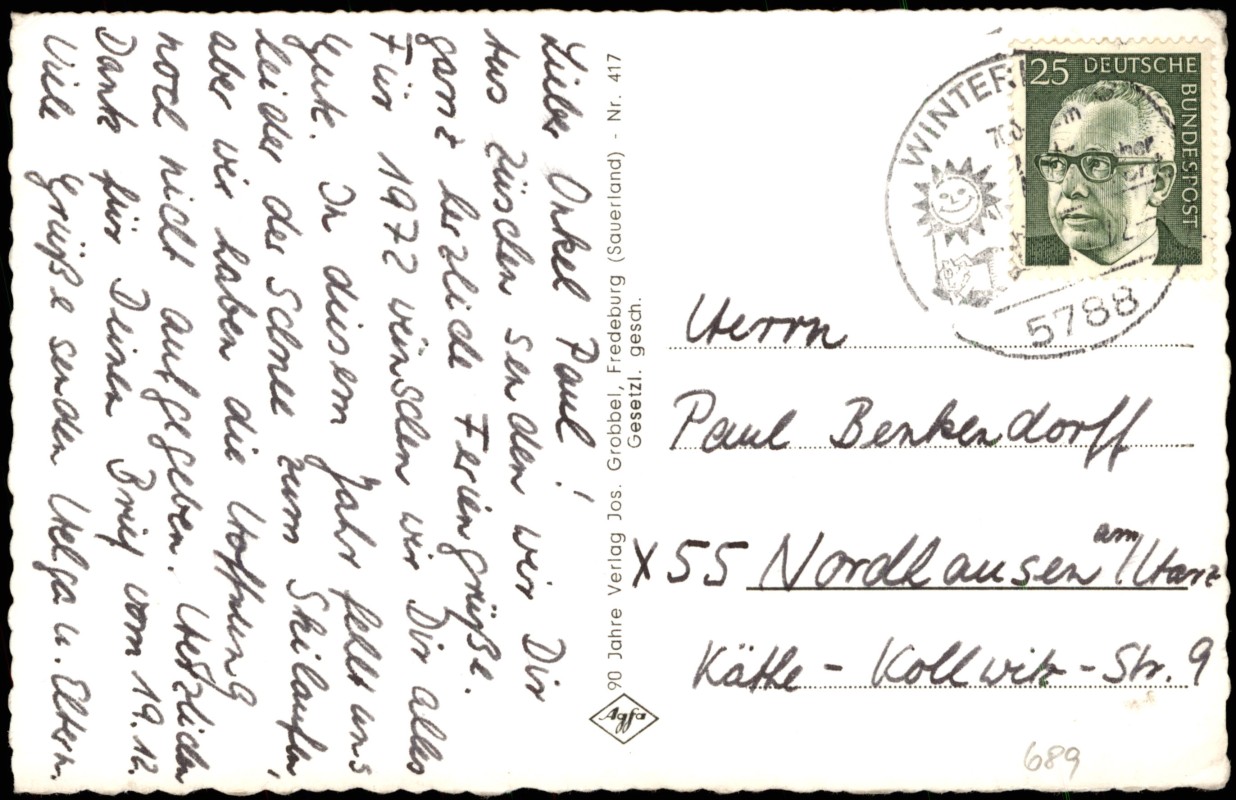 Lieber Onkel Paul!
Aus Züschen senden wir Dir
ganz herzliche Feriengrüße.
Für 1972 wünschen wir Dir alles
Gute. In diesem Jahr fehlt uns
leider der Schnee zum Skilaufen,
aber wir haben die Hoffnung
noch nicht aufgegeben. Herzlichen
Dank für Deinen Brief vom 19.12.
Viele Grüße senden Helga u. Eltern.
90 Jahre Verlag Jos. Grobbel, Fredeburg (Sauerland) - Nr. 417
Gesetzl. gesch.
Agfa
25 DEUTSCHE
BUNDESPOST
WINTER
5788
Herrn
Paul Benkendorff
X55 Nordhausen am/Harz
Käthe-Kollwitz-Str. 9
689